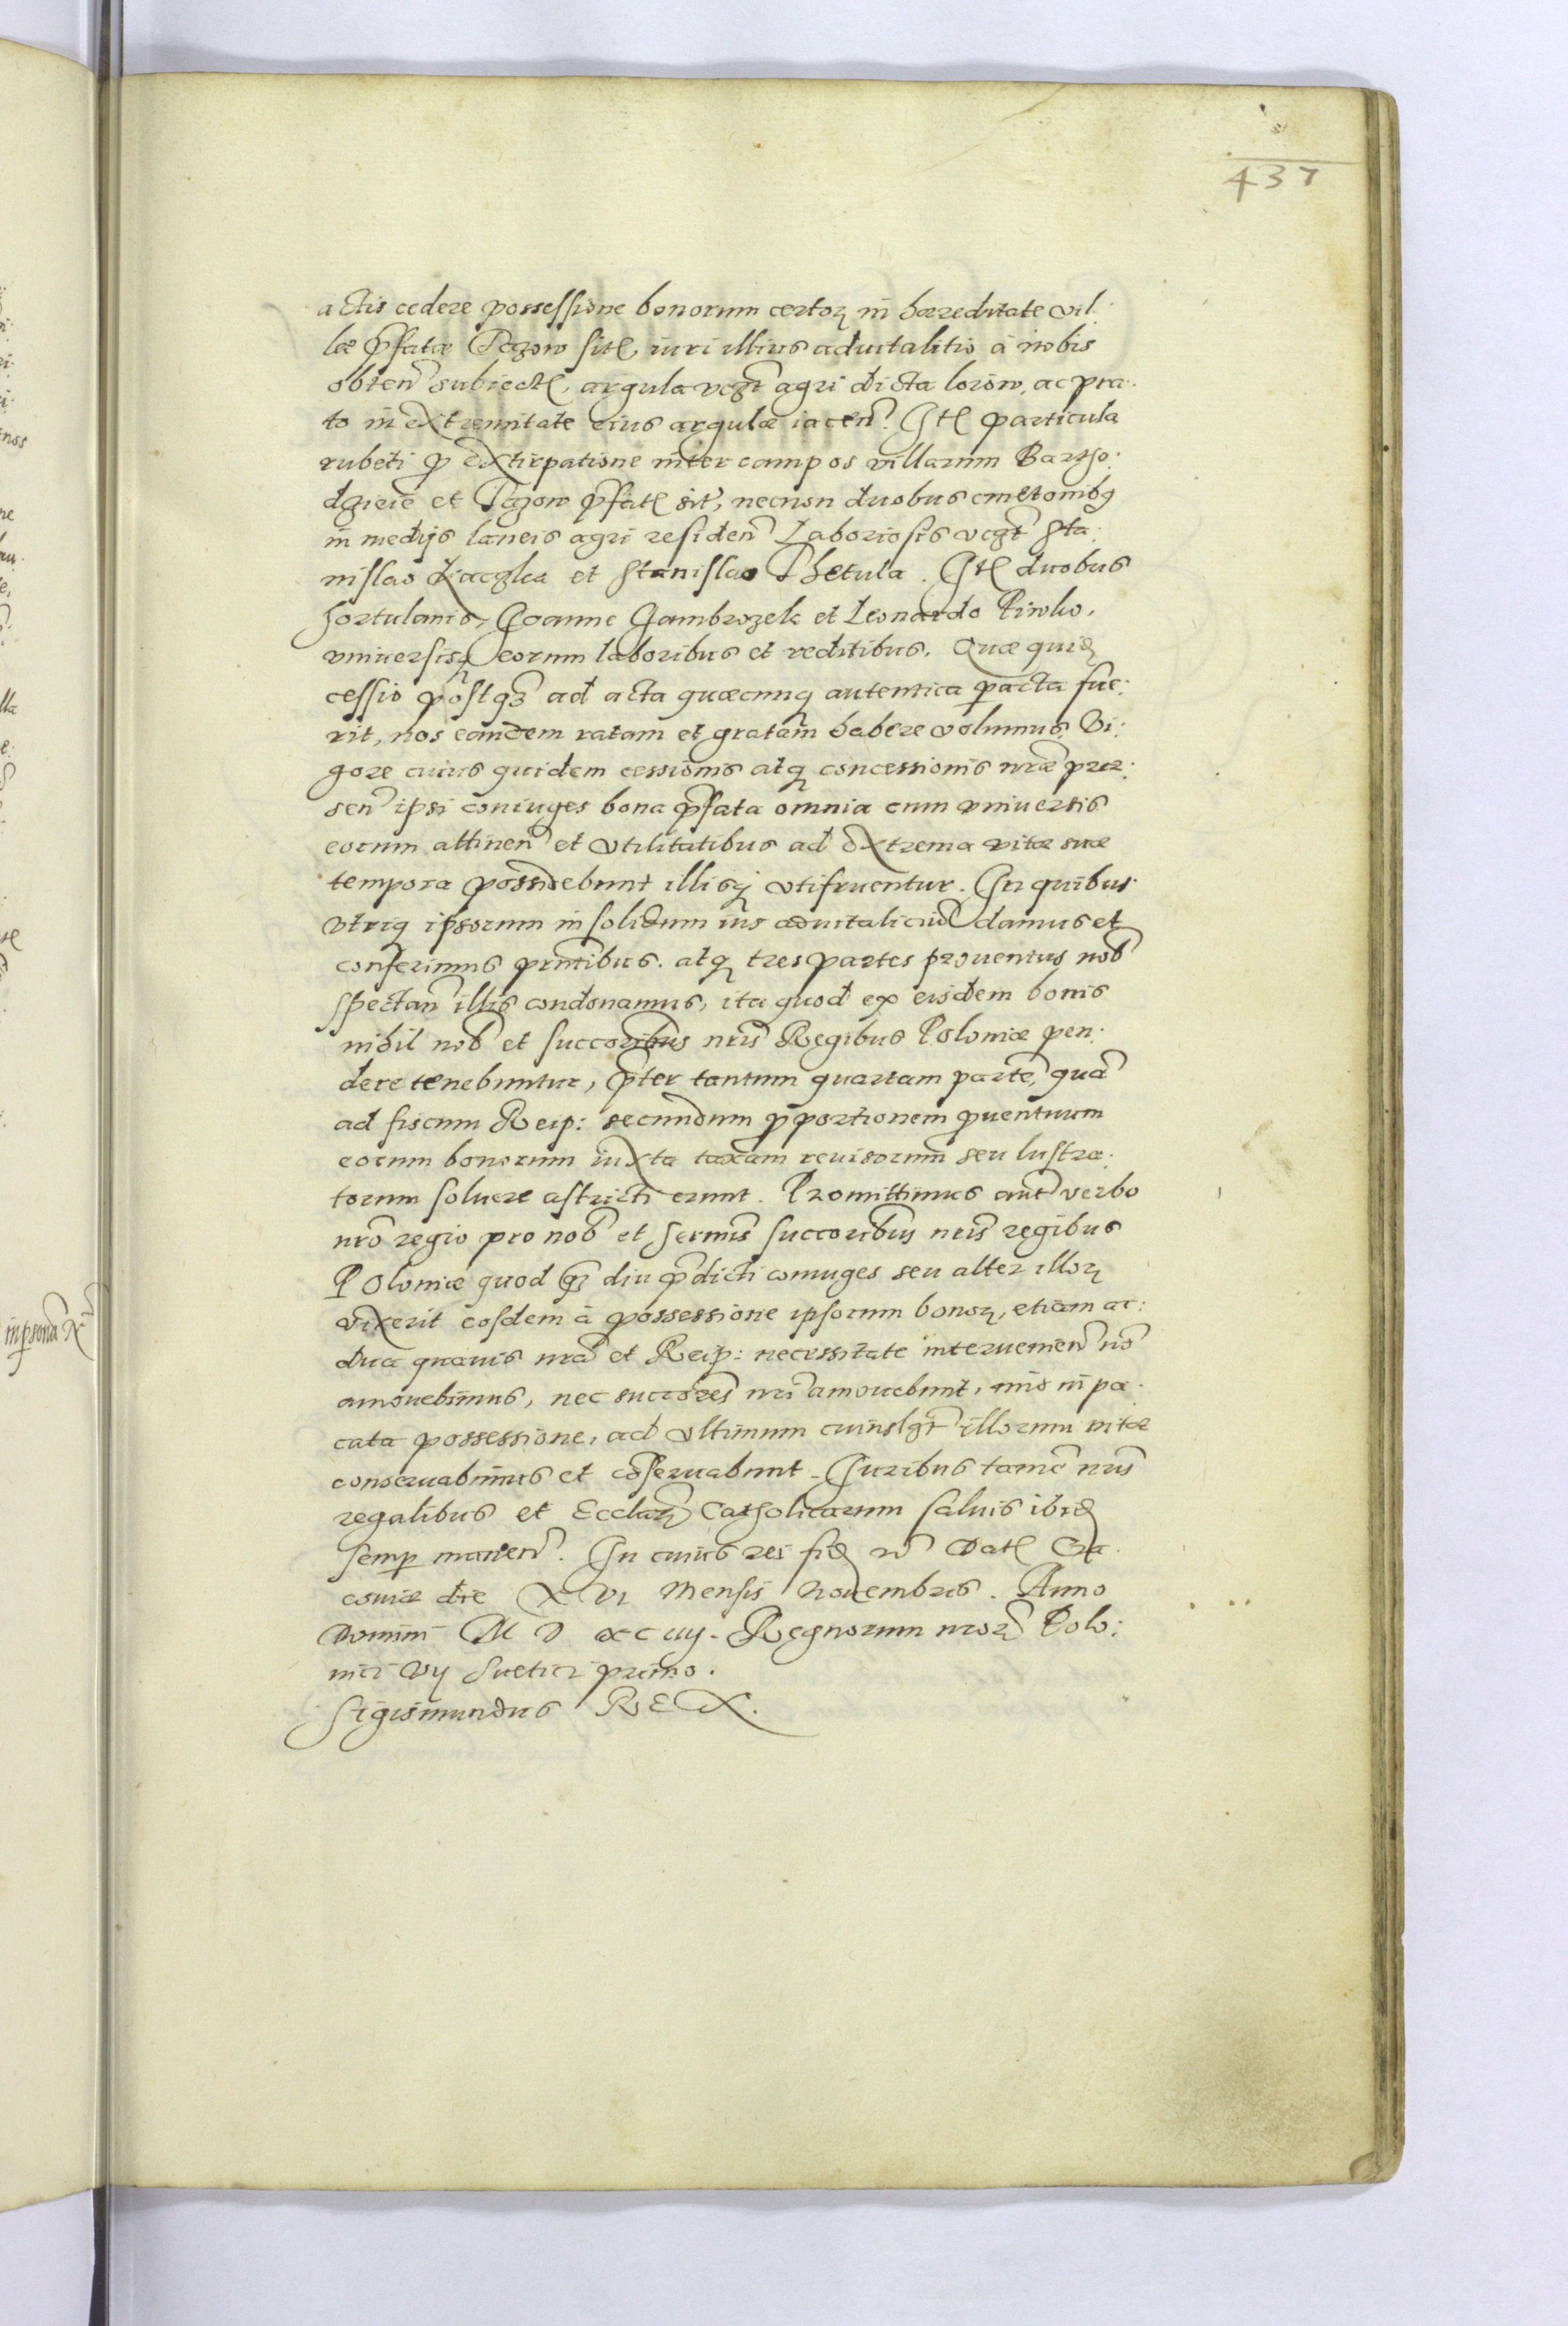 437
actis cedere possessione bonorum certoꝝ in hæreditate vil:
læ p̃fatæ Tczow sitꝭ, iuri illius aduitalitio à nobis
obten̄ subiectꝭ, argula vcꝫt agri dicta lorow, ac pra:
to in extremitate eius argulæ iacen̄. Itꝭ particula
rubeti ꝓ extirpatione inter campos villarum Bartho:
dzieie et Tczow p̃fatꝭ sit̃, necnon duobus cmetonibꝰ
in medijs laneis agri residen̄ Laboriosis vcꝫt Sta:
nislao et Stanislao Thetula. Itꝭ duobus
hortulanis, Joanne Jambrozek et Leonardo Piwko,
vniuersisqꝫ eorum laboribus et reditibus. Quæ quiđ
cessio postqꝫ ad acta quæcunqꝫ autentica ꝑacta fue:
rit, nos eandem ratam et gratam habere volumus. Vi:
gore cuius quidem cessionis atqꝫ concessionis nr̃æ præ:
sen̄ ipsi coniuges bona p̃fata omnia cum vniuersis
eorum attinen̄ et vtilitatibus ad extrema vitæ suæ
tempora possidebunt illisqꝫ vtifruentur. In quibus
vtriqꝫ ipsorum in solidum ius aduitaliciũ damus et
conferimus pr̃ntibus. atqꝫ tres partes prouentus nob̃
spectan̄ illis condonamus, ita quod ex eisdem bonis
nihil nob̃ et succoribus nr̃is Regibus Poloniæ pen:
dere tenebuntur, p̃ter tantum quartam partẽ, quã
ad fiscum Reip: secundum ꝓportionem ꝓuentuum
eorum bonorum iuxta taxam reuisorum seu lustra:
torum soluere astricti erunt. Promittimus aut̃ verbo
nr̃o regio pro nob̃ et Sermis succoribus nr̃is regibus
Poloniæ quod qꝫ diu p̃dicti coniuges seu alter illoꝝ
vixerit eosdem à possessione ipsorum bonoꝝ, etiam ar:
dua quauis nr̃a et Reip: necessitate interuenien̄ nõ
amouebimus, nec succores̃ nr̃i amouebunt, imò in pa:
cata possessione, ad vltimum cuiuslꝫt illorum vitæ
conseruabimus et cõseruabunt. Juribus tamẽ nr̃is
regalibus et Ecclaꝝ Catholicarum saluis ibiđ
semꝑ manen̄. In cuius rei fiđ rc̃ Datꝭ Cra:
couiæ die XVI Mensis Nouembris. Anno
Domini M D XCIIIJ. Regnorum nr̃oꝝ Polo:
nici VIJ Suetici primo.
Sigismundus REX.
in ꝑsona